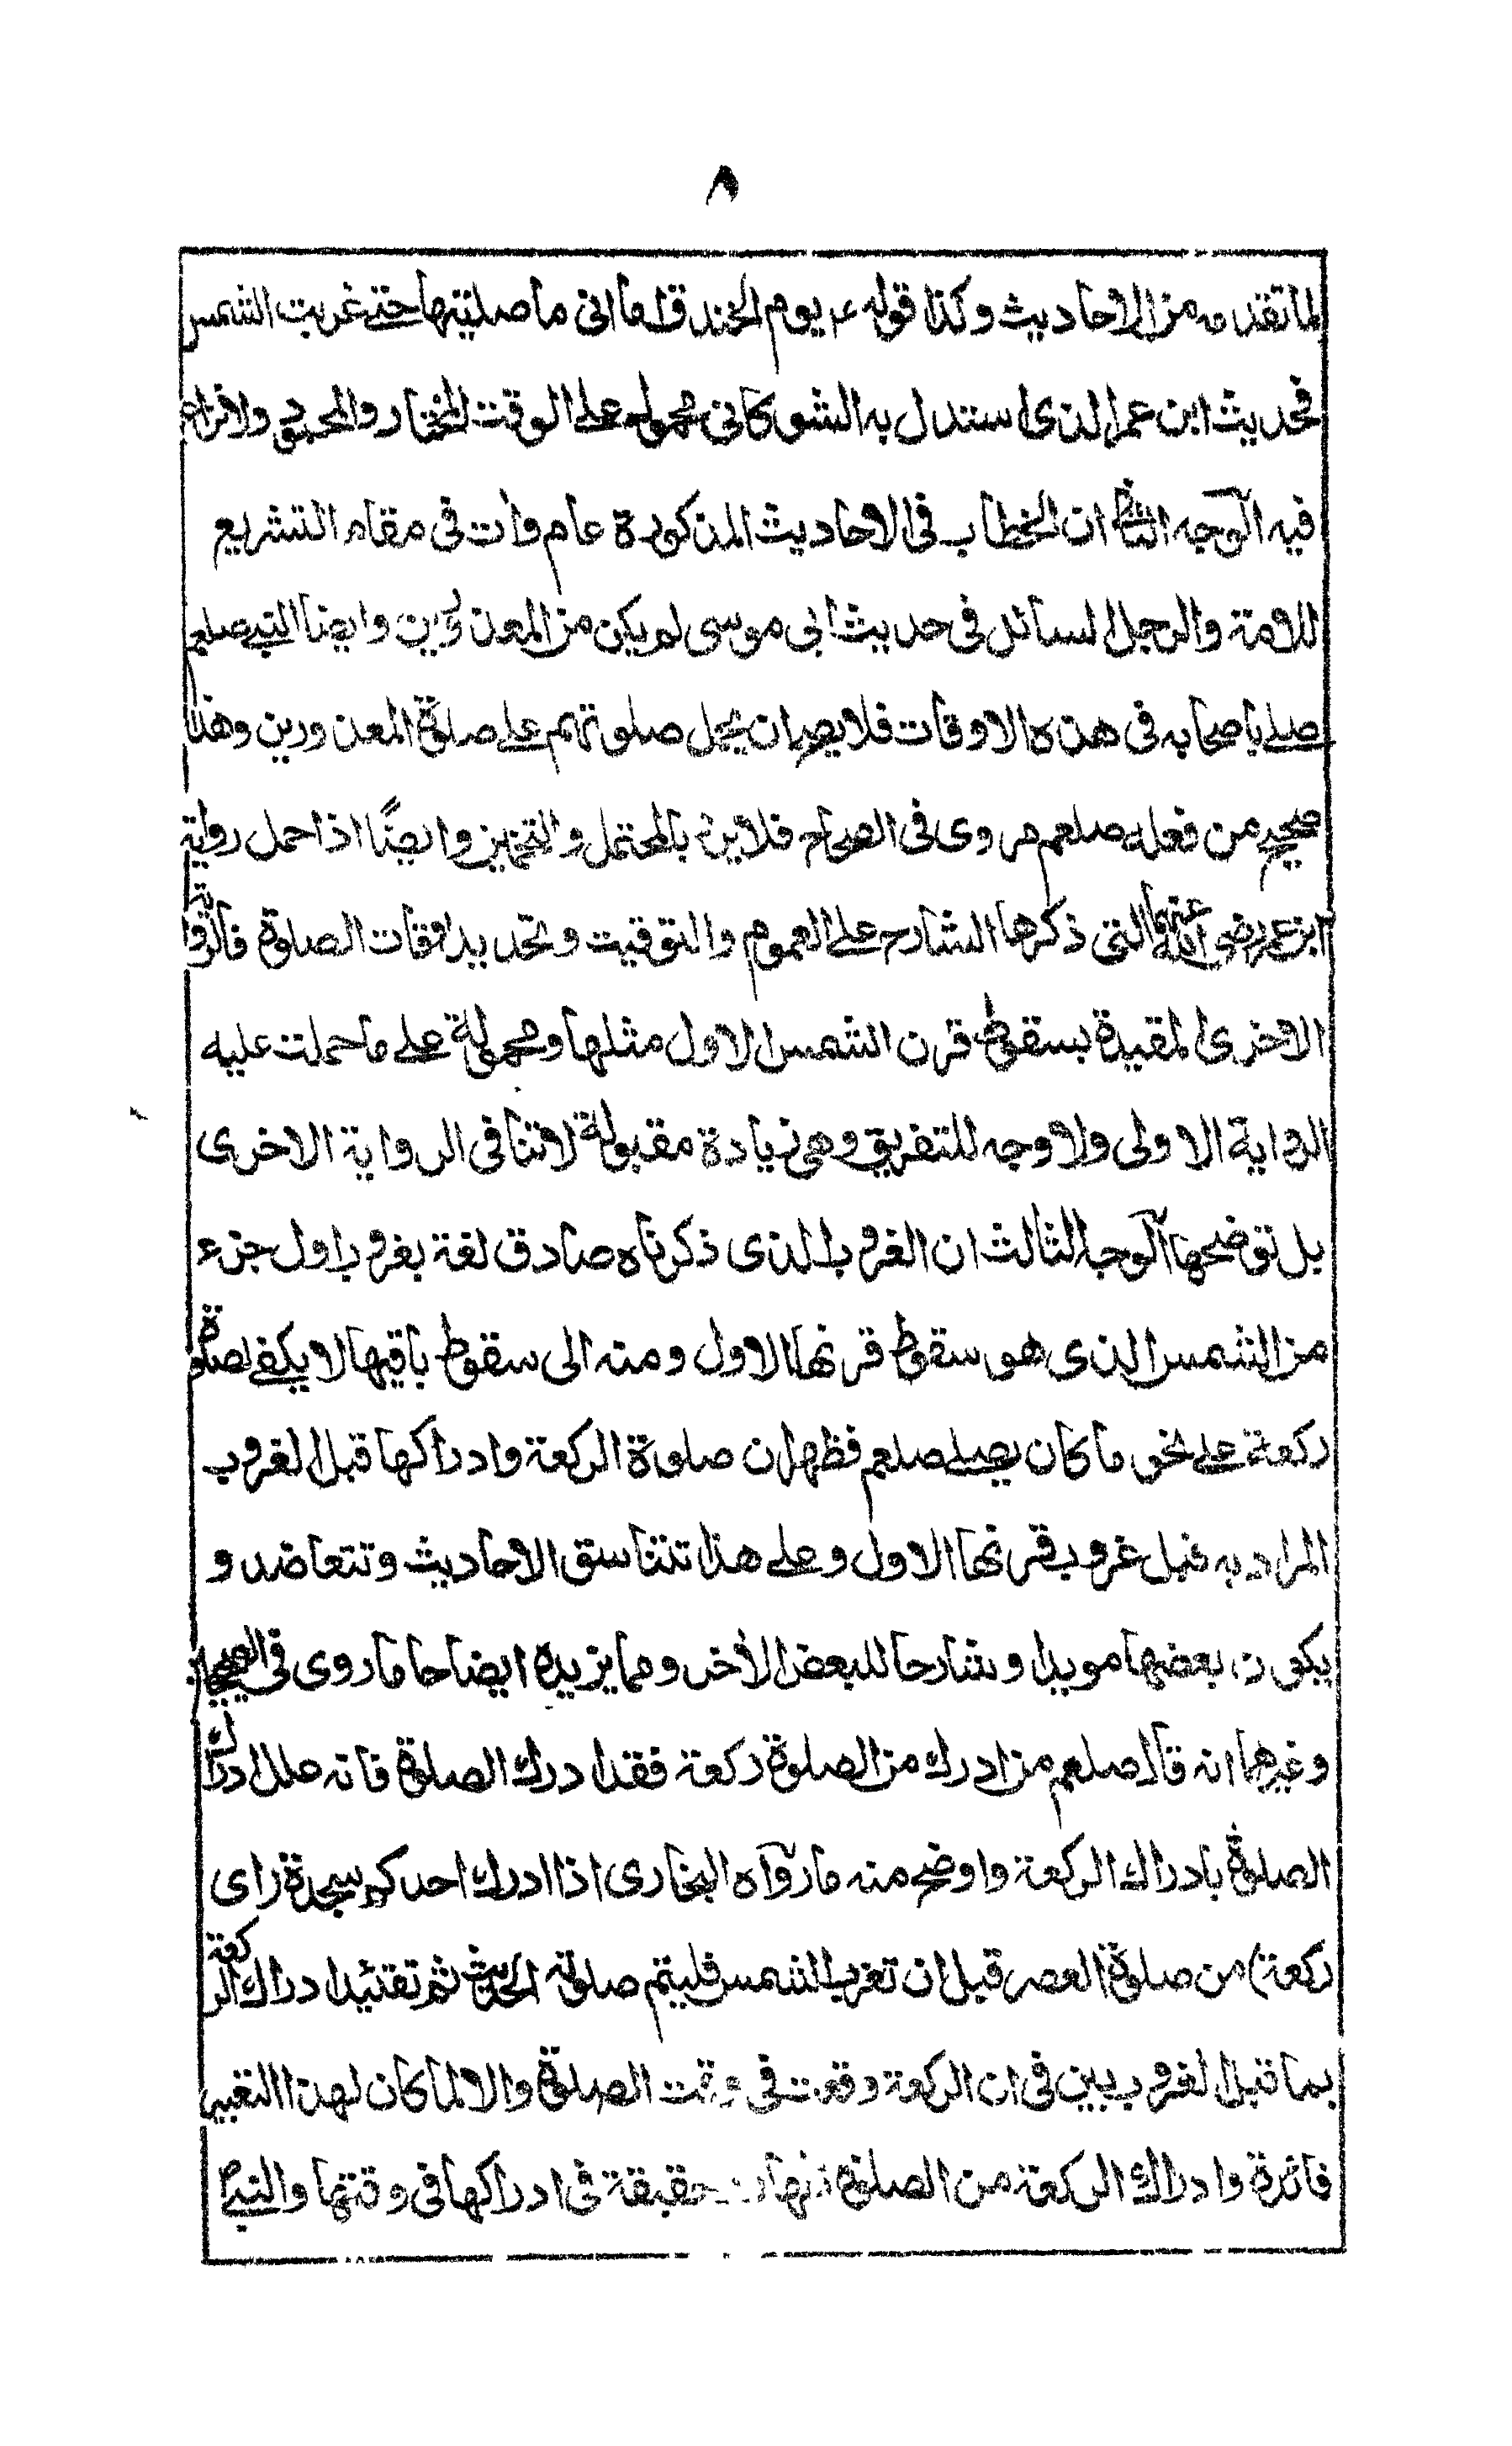 ٨
لما تقدمه من الاحاديث وكذا قوله ع م يوم الخندق اما انى ما صليتها حتى غربت الشمس
فحديث ابن عمر الذى استدل به الشوكانى محمول على الوقت المختار والمحبوب ولا نزاع
فيه الوجه الثانى ان الخطاب فى الاحاديث المذكورة عام وات فى مقام التشريع
للامة والرجل السائل فى حديث ابى موسى لم يكن من المعذورين وايضا النبى صلعم
صلى باصحابه فى هذه الاوقات فلا يصح ان يحمل صلوتهم على صلوة المعذورين وهذا
صحيح من فعله صلعم مروى فى الصحاح فلا يرد بالمحتمل والتخمين وايضًا اذا حمل رواية
ابن عمر رضى الله عنهما التى ذكرها الشارح على العموم والتوقيت وتحديد اوقات الصلوة فالرواية
الاخرى المقيدة بسقوط قرن الشمس الاول مثلها ومحمولة على ما حملت عليه
الرواية الاولى ولا وجه للتفريق وهى زيادة مقبولة لا تنافى الرواية الاخرى
بل توضحها الوجه الثالث ان الغروب الذى ذكرناه صادق لغة بغروب اول جزء
من الشمس الذى هو سقوط قرنها الاول ومنه الى سقوط باقيها لا يكفى لصلوة
ركعة على نحو ما كان يصلى صلعم فظهر ان صلوة الركعة وادراكها قبل الغروب
المراد به قبل غروب قرنها الاول وعلى هذا تتناسق الاحاديث وتتعاضد و
يكون بعضها مويدا وشارحا للبعض الأخر ومما يزيده ايضاحا ما روى فى الصحيحين
وغيرهما انه قال صلعم من ادرك من الصلوة ركعة فقد ادرك الصلوة فانه علل ادراك
الصلوة بادراك الركعة واوضح منه ما رواه البخارى اذا ادرك احدكم سجدة (اى
ركعة) من صلوة العصر قبل ان تغرب الشمس فليتم صلوته الحديث ثم تقئيد ادراك الركعة
بما قبل الغروب يبين فى ان الركعة وقعت فى وقت الصلوة والا لما كان لهذا التعبير
فائدة وادراك الركعة من الصلوة حقيقة فى ادراكها فى وقتها والنبى ص